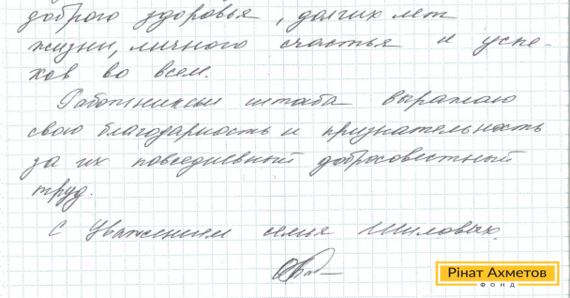 доброго здоровья, долгих лет
жизни, личного счастья и успе-
хов во всем.
Работникам штаба выражаю
свою благодарность и признательность
за их повседневный добросовестный
труд.
С Уважением семья Шиловых.
Рінат Ахметов
ФОНД